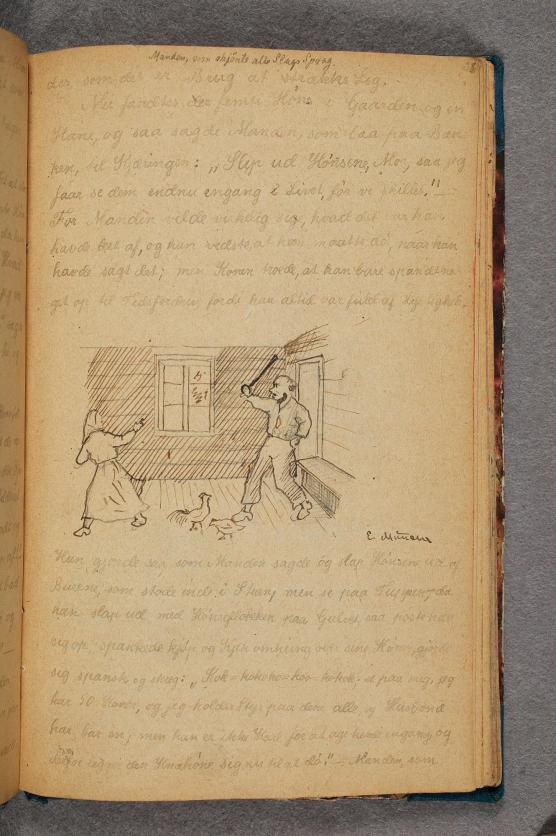 Manden, som skjönte alle Slags Sprog.
der, som det er Brug at strække sig.
Nu fandtes der femti Höns i Gaarden og en
Hane, og saa sagde Manden, som laa paa Bæn-
ken, til Kjæringen: „Slip ud Hönsene, Mor, saa jeg
faar se dem endnu engang i Livet, för vi skilles."—
For Manden vilde virkelig sige, hvad det var han
havde leet af, og han vidste, at han maatte dö, naar han
havde sagt det; men Konen troede, at han bare spandt no-
get op til Tidsfordriv, fordi han altid var fuld af
E. Munch
Hun gjorde saa som Manden sagde og slap Hönsene ud af
Burene, som stode inde i Stuen, men se paa Tuppen; da
han slap ud med Hönseflokken paa Gulvet, saa
sig op, spankede hjöp og omkring sine Höner, gjorde
sig spansk og skreg: „Kok-kokoko-koo-kokok- se paa mig, jeg
har 50 Koner, og jeg holder Styr paa dem alle, og Husbond
har bar en; men han er ikke Karl for at age hende engang, og
derfor lægger den Knehöne sig nu til at dö."— Manden, som